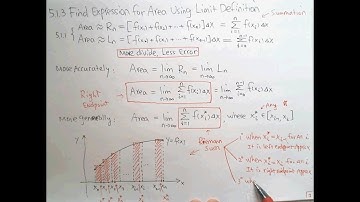 5.1.3 Find Expression for Area Using Limit Definition
5.1.1
Area ≈ Rn = [f(x1) + f(x2) + ... + f(xn)] Δx = Σ f(xi) Δx
Summation
Area ≈ Ln = [f(x0) + f(x1) + ... + f(xn-1)] Δx = Σ f(xi) Δx
More divide, Less Error
More Accurately: Area = lim n→∞ Rn = lim n→∞ Ln
Right Endpoint
Area = lim n→∞ Σ f(xi) Δx = lim n→∞ Σ f(xi) Δx
Any
More generally: Area = lim n→∞ Σ f(xi*) Δx where xi* ∈ [xi-1, xi]
Riemann Sum
y
y=f(x)
x
1° when xi* = xi-1 for all i
It is left endpoint Approx
2° when xi* = xi for all i
It is right endpoint Approx
3° whe